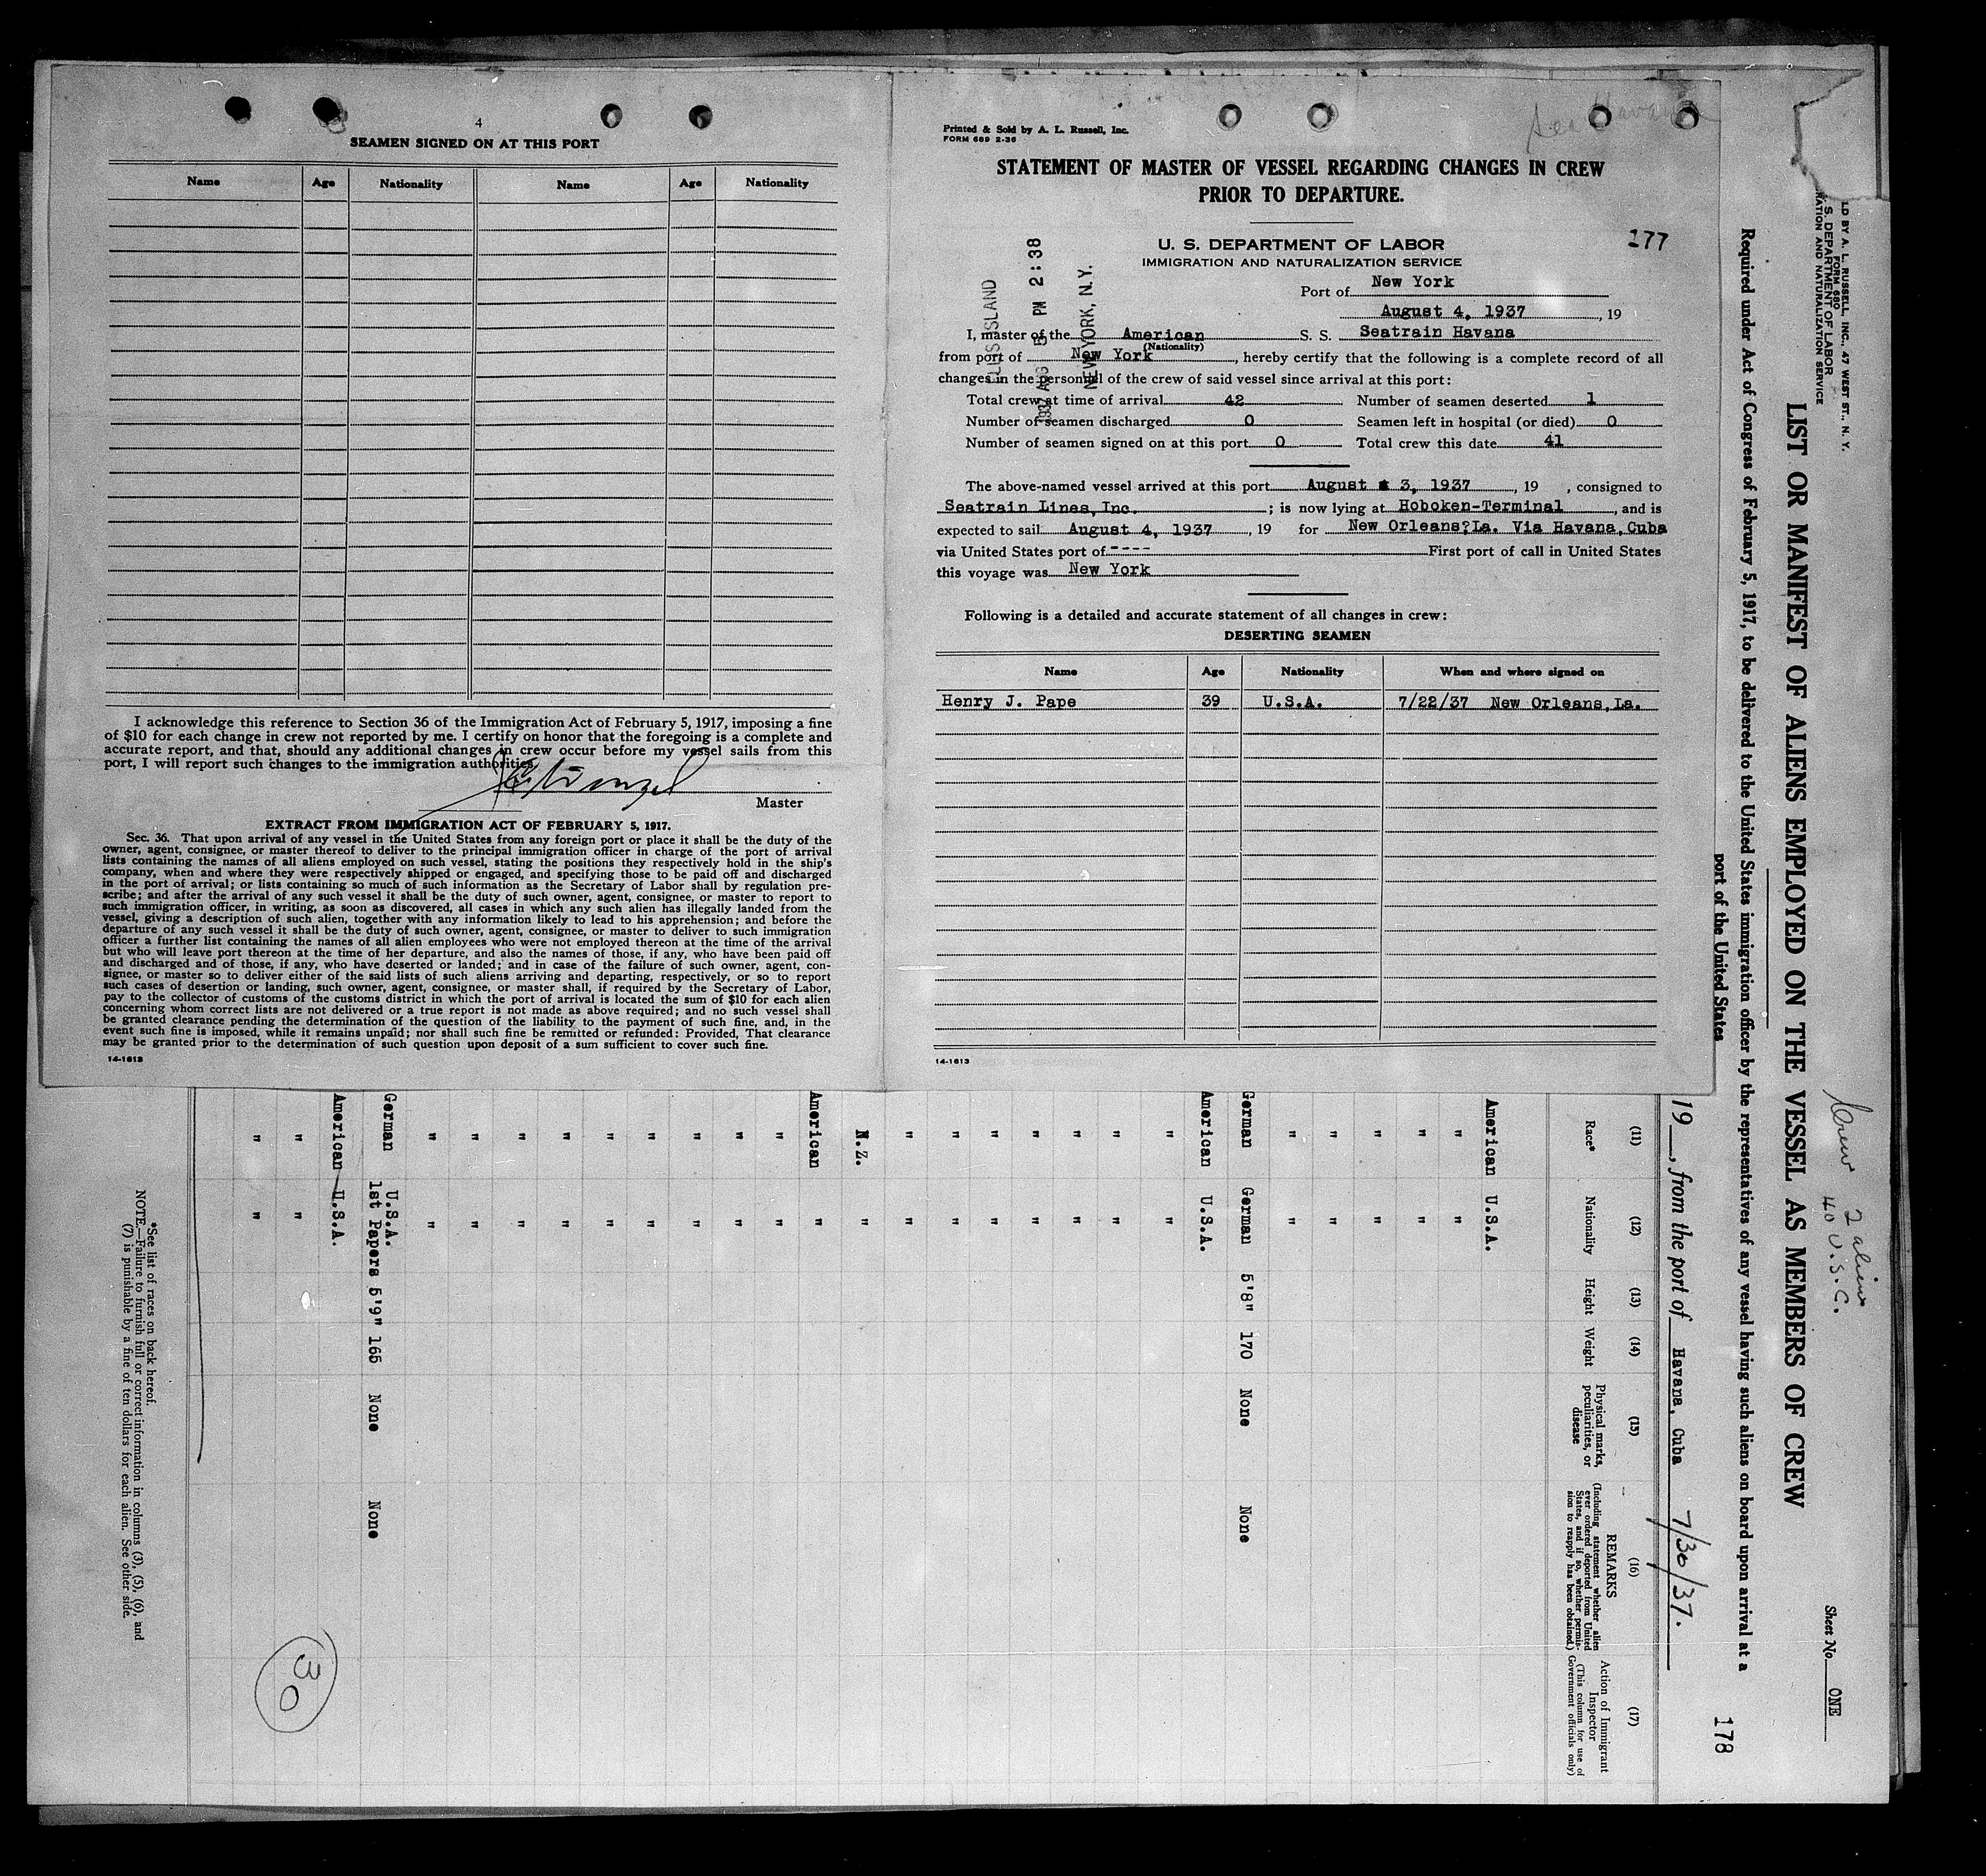 4
SEAMEN SIGNED ON AT THIS PORT
Name Age Nationality Name Age Nationality
I acknowledge this reference to Section 36 of the Immigration Act of February 5, 1917, imposing a fine
of $10 for each change in crew not reported by me. I certify on honor that the foregoing is a complete and
accurate report, and that, should any additional changes in crew occur before my vessel sails from this
port, I will report such changes to the immigration authorities.
Master
EXTRACT FROM IMMIGRATION ACT OF FEBRUARY 5, 1917.
Sec. 36. That upon arrival of any vessel in the United States from any foreign port or place it shall be the duty of the
owner, agent, consignee, or master thereof to deliver to the principal immigration officer in charge of the port of arrival
lists containing the names of all aliens employed on such vessel, stating the positions they respectively hold in the ship's
company, when and where they were respectively shipped or engaged, and specifying those to be paid off and discharged
in the port of arrival; or lists containing so much of such information as the Secretary of Labor shall by regulation pre-
scribe; and after the arrival of any such vessel it shall be the duty of such owner, agent, consignee, or master to report to
such immigration officer, in writing, as soon as discovered, all cases in which any such alien has illegally landed from the
vessel, giving a description of such alien, together with any information likely to lead to his apprehension; and before the
departure of any such vessel it shall be the duty of such owner, agent, consignee, or master to deliver to such immigration
officer a further list containing the names of all alien employees who were not employed thereon at the time of the arrival
but who will leave port thereon at the time of her departure, and also the names of those, if any, who have been paid off
and discharged and of those, if any, who have deserted or landed; and in case of the failure of such owner, agent, con-
signee, or master so to deliver either of the said lists of such aliens arriving and departing, respectively, or so to report
such cases of desertion or landing, such owner, agent, consignee, or master shall, if required by the Secretary of Labor,
pay to the collector of customs of the customs district in which the port of arrival is located the sum of $10 for each alien
concerning whom correct lists are not delivered or a true report is not made as above required; and no such vessel shall
be granted clearance pending the determination of the question of the liability to the payment of such fine, and, in the
event such fine is imposed, while it remains unpaid; nor shall such fine be remitted or refunded: Provided, That clearance
may be granted prior to the determination of such question upon deposit of a sum sufficient to cover such fine.
14-1613
Sea Havana
Printed & Sold by A. L. Russell, Inc.
FORM 689 2-36
STATEMENT OF MASTER OF VESSEL REGARDING CHANGES IN CREW
PRIOR TO DEPARTURE.
177
U. S. DEPARTMENT OF LABOR
IMMIGRATION AND NATURALIZATION SERVICE
ELLIS ISLAND
1937 AUG 5 PM 2:38
NEW YORK, N.Y.
Port of New York
August 4, 1937, 19
I, master of the American S. S. Seatrain Havana
(Nationality)
from port of New York, hereby certify that the following is a complete record of all
changes in the personnel of the crew of said vessel since arrival at this port:
Total crew at time of arrival 42 Number of seamen deserted 1
Number of seamen discharged 0 Seamen left in hospital (or died) 0
Number of seamen signed on at this port 0 Total crew this date 41
The above-named vessel arrived at this port August 3, 1937, 19 , consigned to
Seatrain Lines, Inc. ; is now lying at Hoboken-Terminal, and is
expected to sail August 4, 1937, 19 for New Orleans?La. Via Havana, Cuba
via United States port of ---- First port of call in United States
this voyage was New York
Following is a detailed and accurate statement of all changes in crew:
DESERTING SEAMEN
Name Age Nationality When and where signed on
Henry J. Pape 39 U.S.A. 7/22/37 New Orleans, La.
14-1613
LD BY A. L. RUSSELL, INC., 47 WEST ST., N. Y.
FORM 680
S. DEPARTMENT OF LABOR
RATION AND NATURALIZATION SERVICE
Crew 2 aliens
40 U.S.C.
Sheet No. ONE
LIST OR MANIFEST OF ALIENS EMPLOYED ON THE VESSEL AS MEMBERS OF CREW
Required under Act of Congress of February 5, 1917, to be delivered to the United States immigration officer by the representatives of any vessel having such aliens on board upon arrival at a
port of the United States
178
19 , from the port of Havana, Cuba 7/30/37.
(11) (12) (13) (14) (15) (16) (17)
Race* Nationality Height Weight Physical marks, peculiarities, or disease
REMARKS
(Including statement whether alien
ever ordered deported from United
States, and if so, whether permis-
sion to reapply has been obtained)
Action of Immigrant
Inspector
(This column for use of
Government officials only)
American U.S.A.
" "
" "
" "
" "
" "
German German 5'8" 170 None None
American U.S.A.
" "
" "
" "
" "
" "
" "
" "
N.Z. "
American "
" "
" "
" "
" "
" "
" "
" "
" "
" "
German U.S.A.
1st Papers 5'9" 165 None None
American U.S.A.
" "
" "
*See list of races on back hereof.
NOTE.—Failure to furnish full or correct information in columns (3), (5), (6), and
(7) is punishable by a fine of ten dollars for each alien. See other side.
30